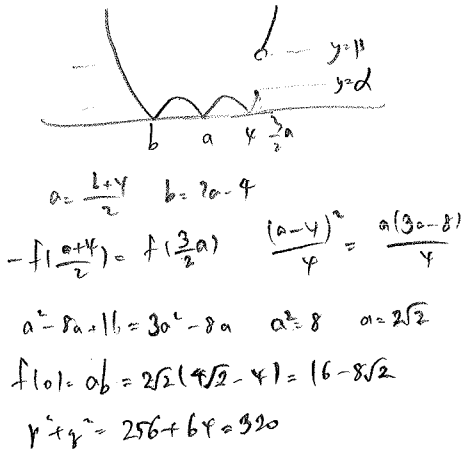 y=β
y=α
b a 4 3/2 a
a = (b+4)/2 b = 2a-4
-f((a+4)/2) = f(3/2 a) (a-4)²/4 = a(3a-8)/4
a²-8a+16 = 3a²-8a a²=8 a=2√2
f(0) = ab = 2√2(4√2-4) = 16-8√2
p²+q² = 256+64=320